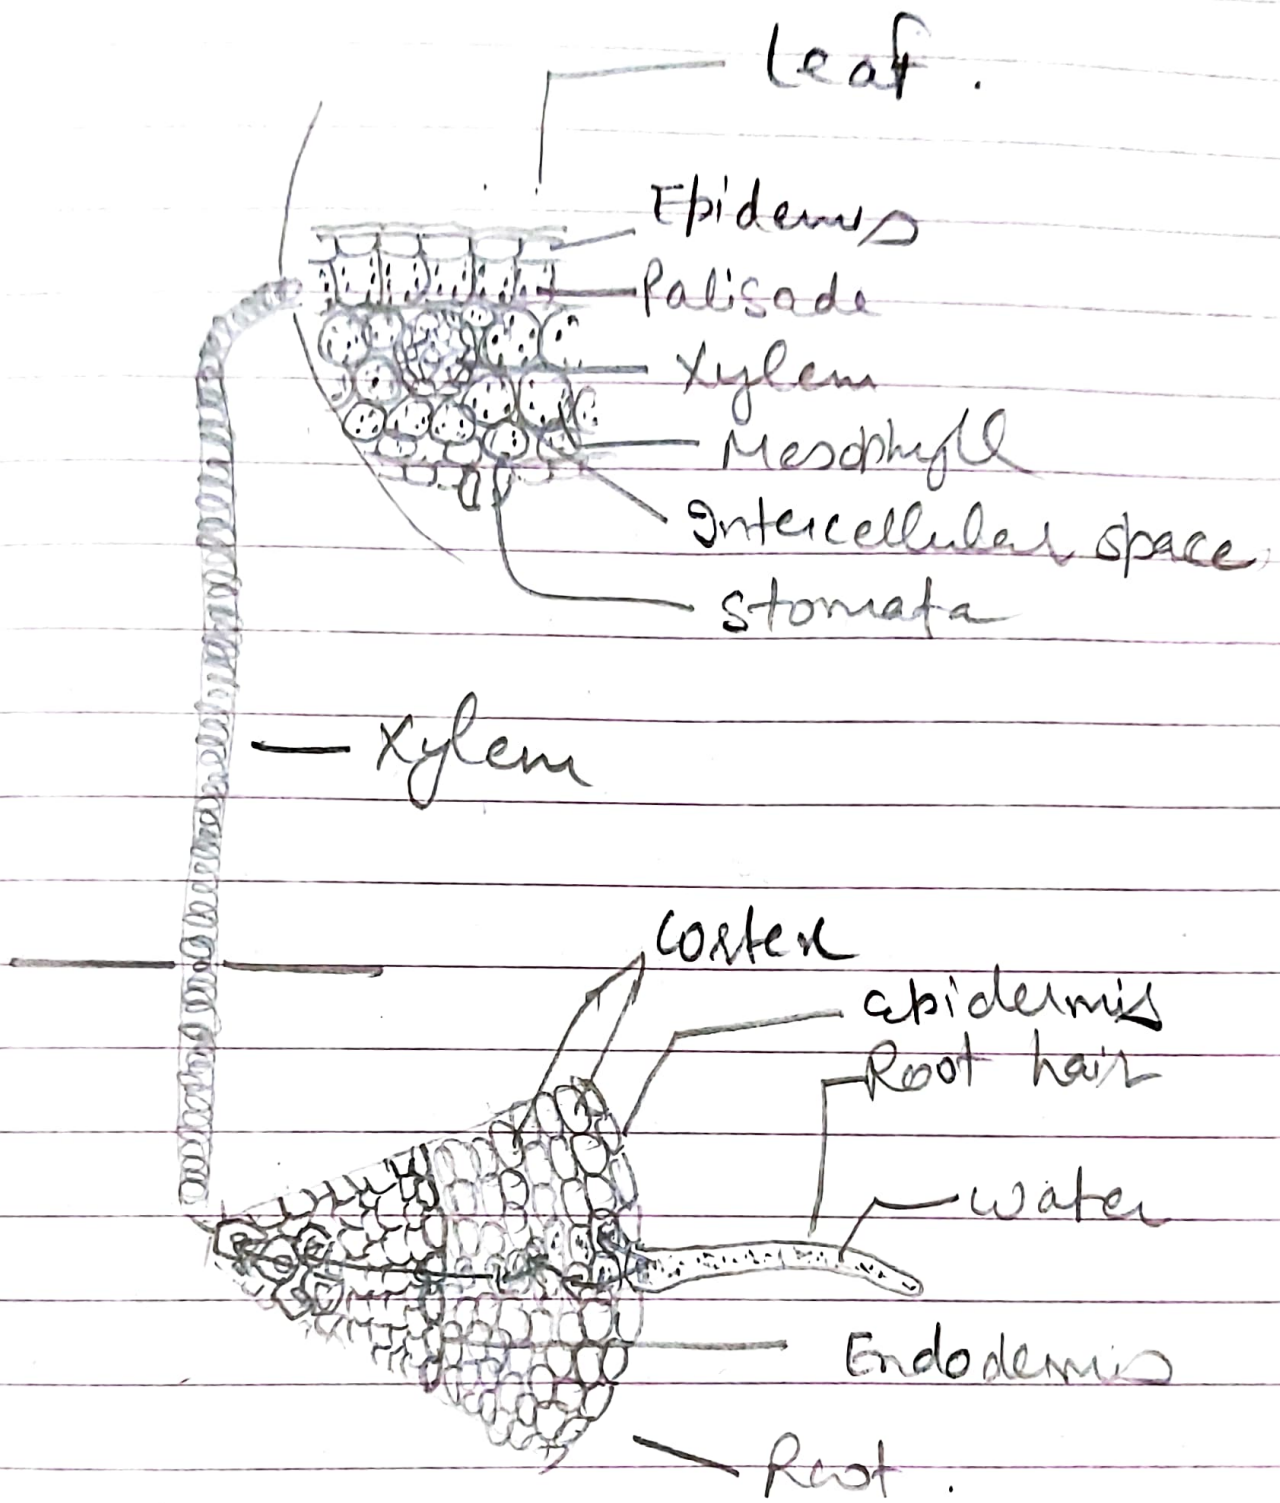 Leaf.
Epidemis
Palisade
Xylem
Mesophyll
Intercellular space
Stomata
Xylem
Cortex
epidermis
Root hair
water
Endodemis
Root.